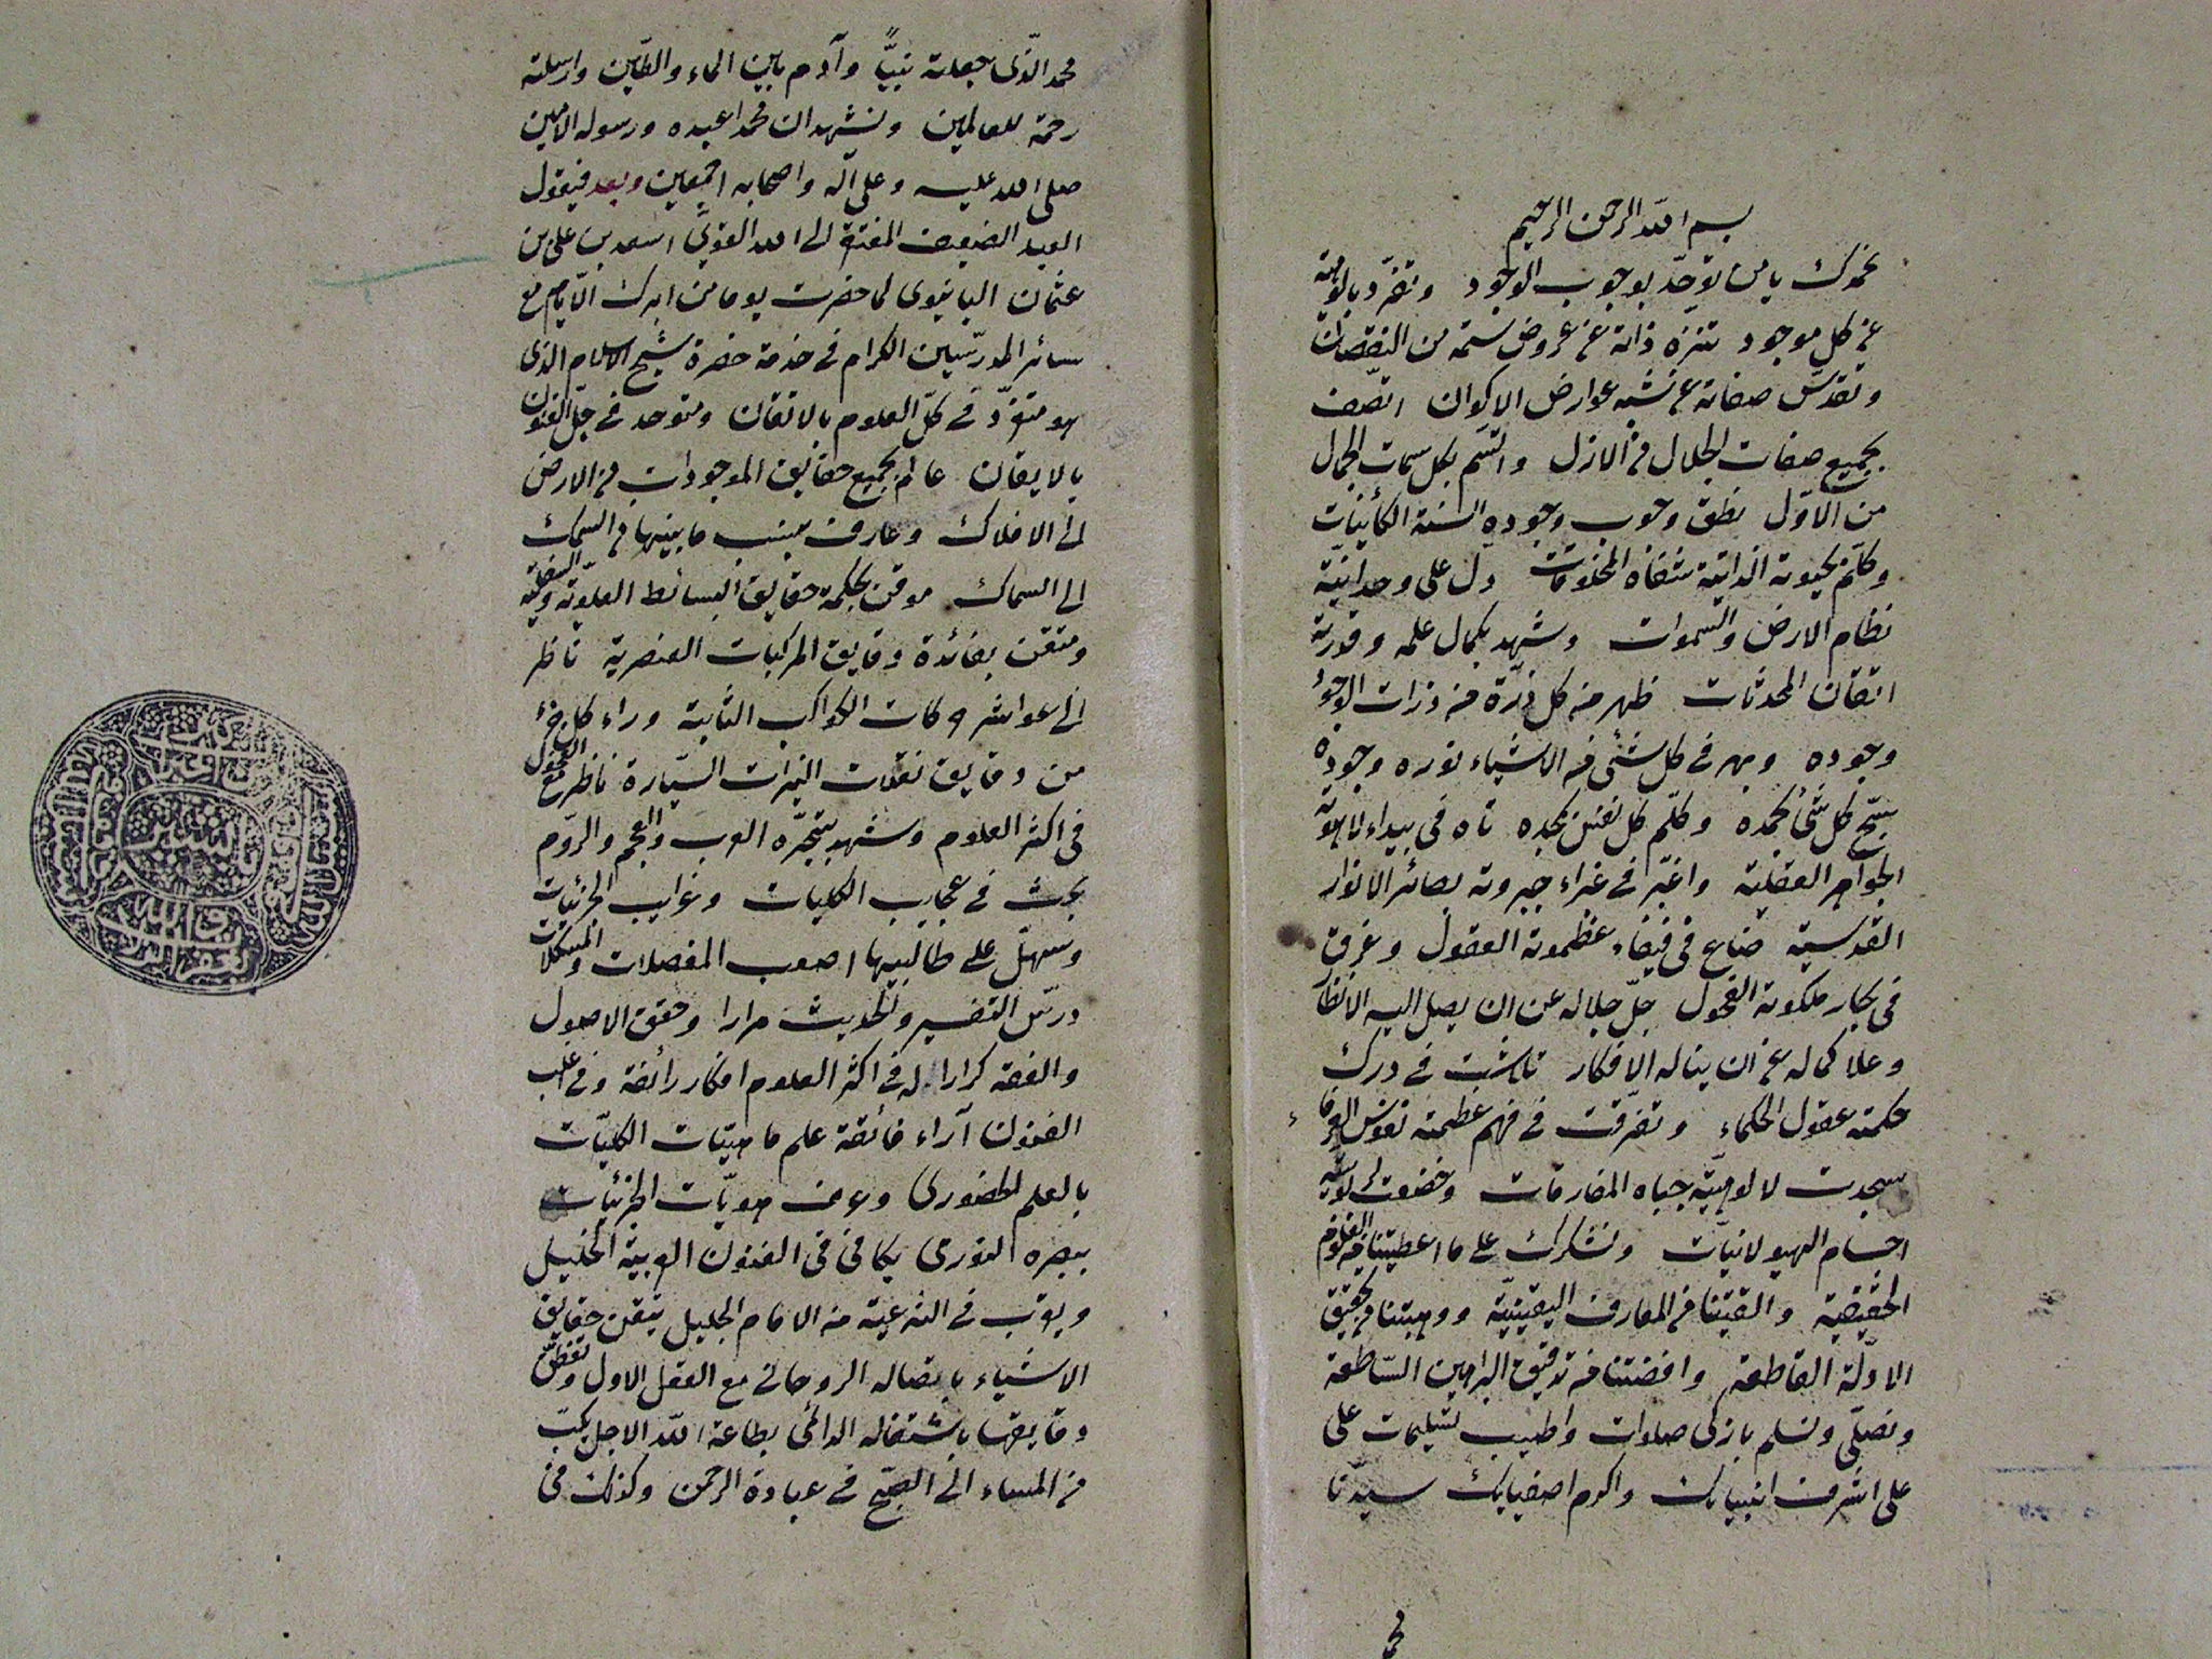 بسم الله الرحمن الرحيم
نحمدك يا من توحّد بوجوب الوجود وتفرّد بالوهيته
عن كل موجود تنزه ذاته عن عروض سمة من النقصان
وتقدّس صفاته عن شبه عوارض الاكوان اتصف
بجميع صفات الجلال فى الازل واتّسم بكل سمات الجمال
من الاوّل نطق وجوب وجوده السنة الكائينات
وكلّم بحيوته الذاتية شفاه المخلوقات دل على وحدانيّة
نظام الارض والسموات وشهد بكمال علمه وقدرته
اتقان المحدثات ظهر من كل ذرّة من ذرات الوجود
وجوده وبهر فى كل شئ من الاشياء نوره وجوده
سبّح كل شئ بحمده وكلّم كل نفس بمجده تاه فى بيداء لاهوته
الجواهر العقلية واغبرّ فى غبراء جبروته بصائر الانوار
القدسية ضاع فى فيفاء عظموته العقول وغرق
فى بحار ملكوته الفحول جلّ جلاله عن ان يصل اليه الانظار
وعلا كماله عن ان يناله الافكار تلاشت فى درك
حكمته عقول الحكماء وتفرّقت فى فهم عظمته نفوس العرفاء
سجدت لالوهيّته جباه المفارقات وخضعت لربوبيته
اجسام الهيولانيات ونشكرك على ما اعطيتنا من العلوم
الحقيقية والقيتنا من المعارف اليقينيّة ووهبتنا من تحقيق
الادلّة القاطعة وافضتنا من توفيق البراهين السّاطعة
ونصلّى ونسلم بازكى صلوات واطيب تسليمات على
على اشرف انبيائك واكرم اصفيائك سيّدنا
محمد الذى جعلته نبيّاً وآدم بين الماء والطّين وارسلته
رحمة للعالمين ونشهد ان محمدا عبده ورسوله الامين
صلى الله عليه وعلى آله واصحابه اجمعين وبعد فيقول
العبد الضعيف المفتقر الى الله القوىّ اسعد بن على بن
عثمان اليانيوى لما حضرت يوما من ابرك الايام مع
سائر المدرّسين الكرام فى خدمة حضرة شيخ الاسلام الذى
هو متفرّد فى كلّ العلوم بالاتقان ومتوحد فى جلّ الفنون
بالايقان عالم بجميع حقايق الموجودات من الارض
الى الافلاك وعارف بنسب ما بينها من السمك
الى السماك موقن بحكمة حقايق البسائط العلويّة والسفليّة
ومتقن بفائدة دقايق المركبات العنصرية ناظر
الى عواشر حركات الكواكب الثابتة وراء كل جزء
من دقايق نقلات النيرات السيّارة ناظر مع الفحول
فى اكثر العلوم وشهد بتبحّره العرب والعجم والروم
بحث فى عجايب الكليات وغرايب الجزئيات
وسهّل على طالبيها اصعب المعضلات والمشكلات
درّس التفسير والحديث مرارا وحقق الاصول
والفقه كرارا له فى اكثر العلوم افكار رائقة وفى اغلب
الفنون آراء فائقة علم ماهيّات الكليّات
بالعلم الحضورى وعرف هويّات الجزئيات
ببصره النورى يكافى فى الفنون العربية الخليل
ويقرب فى الشرعية من الامام الجليل يتقن حقايق
الاشياء باتصاله الروحانى مع العقل الاول وتفطّن
دقايقها باشتغاله الدائمى بطاعة الله الاجل يكبّ
من المساء الى الصبح فى عبادة الرحمن وكذلك فى